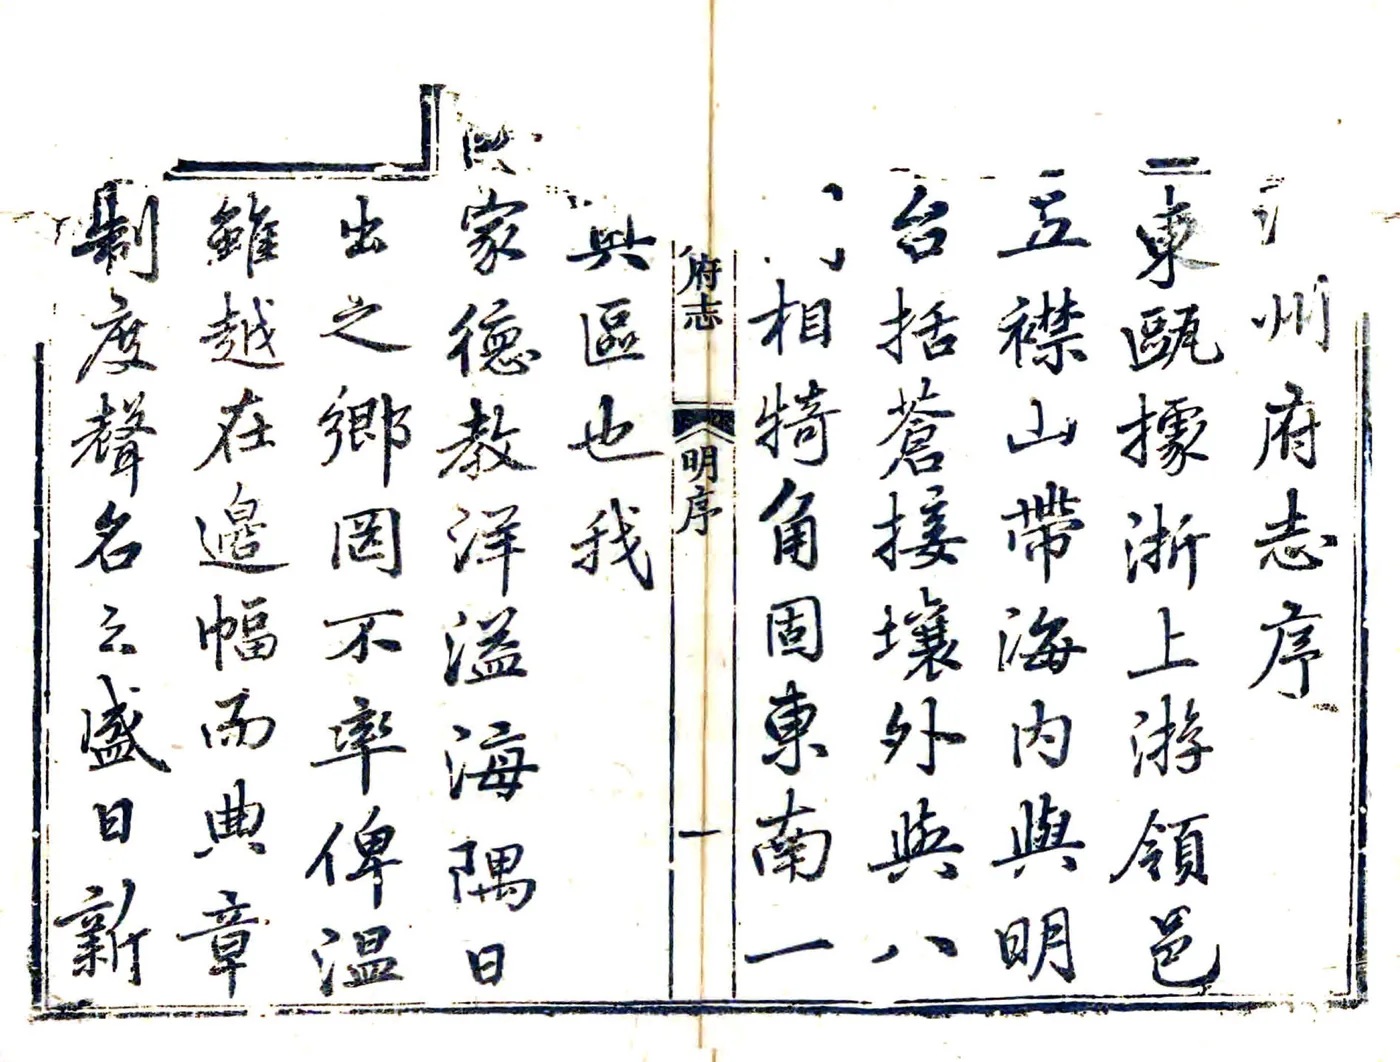 州府志序
東甌據浙上游領邑
五襟山帶海内與明
台括蒼接壤外與八
相犄角固東南一
府志
明序
一
輿區也我
家德教洋溢海隅日
出之鄉罔不率俾温
雖越在邊幅而典章
制度聲名之盛日新